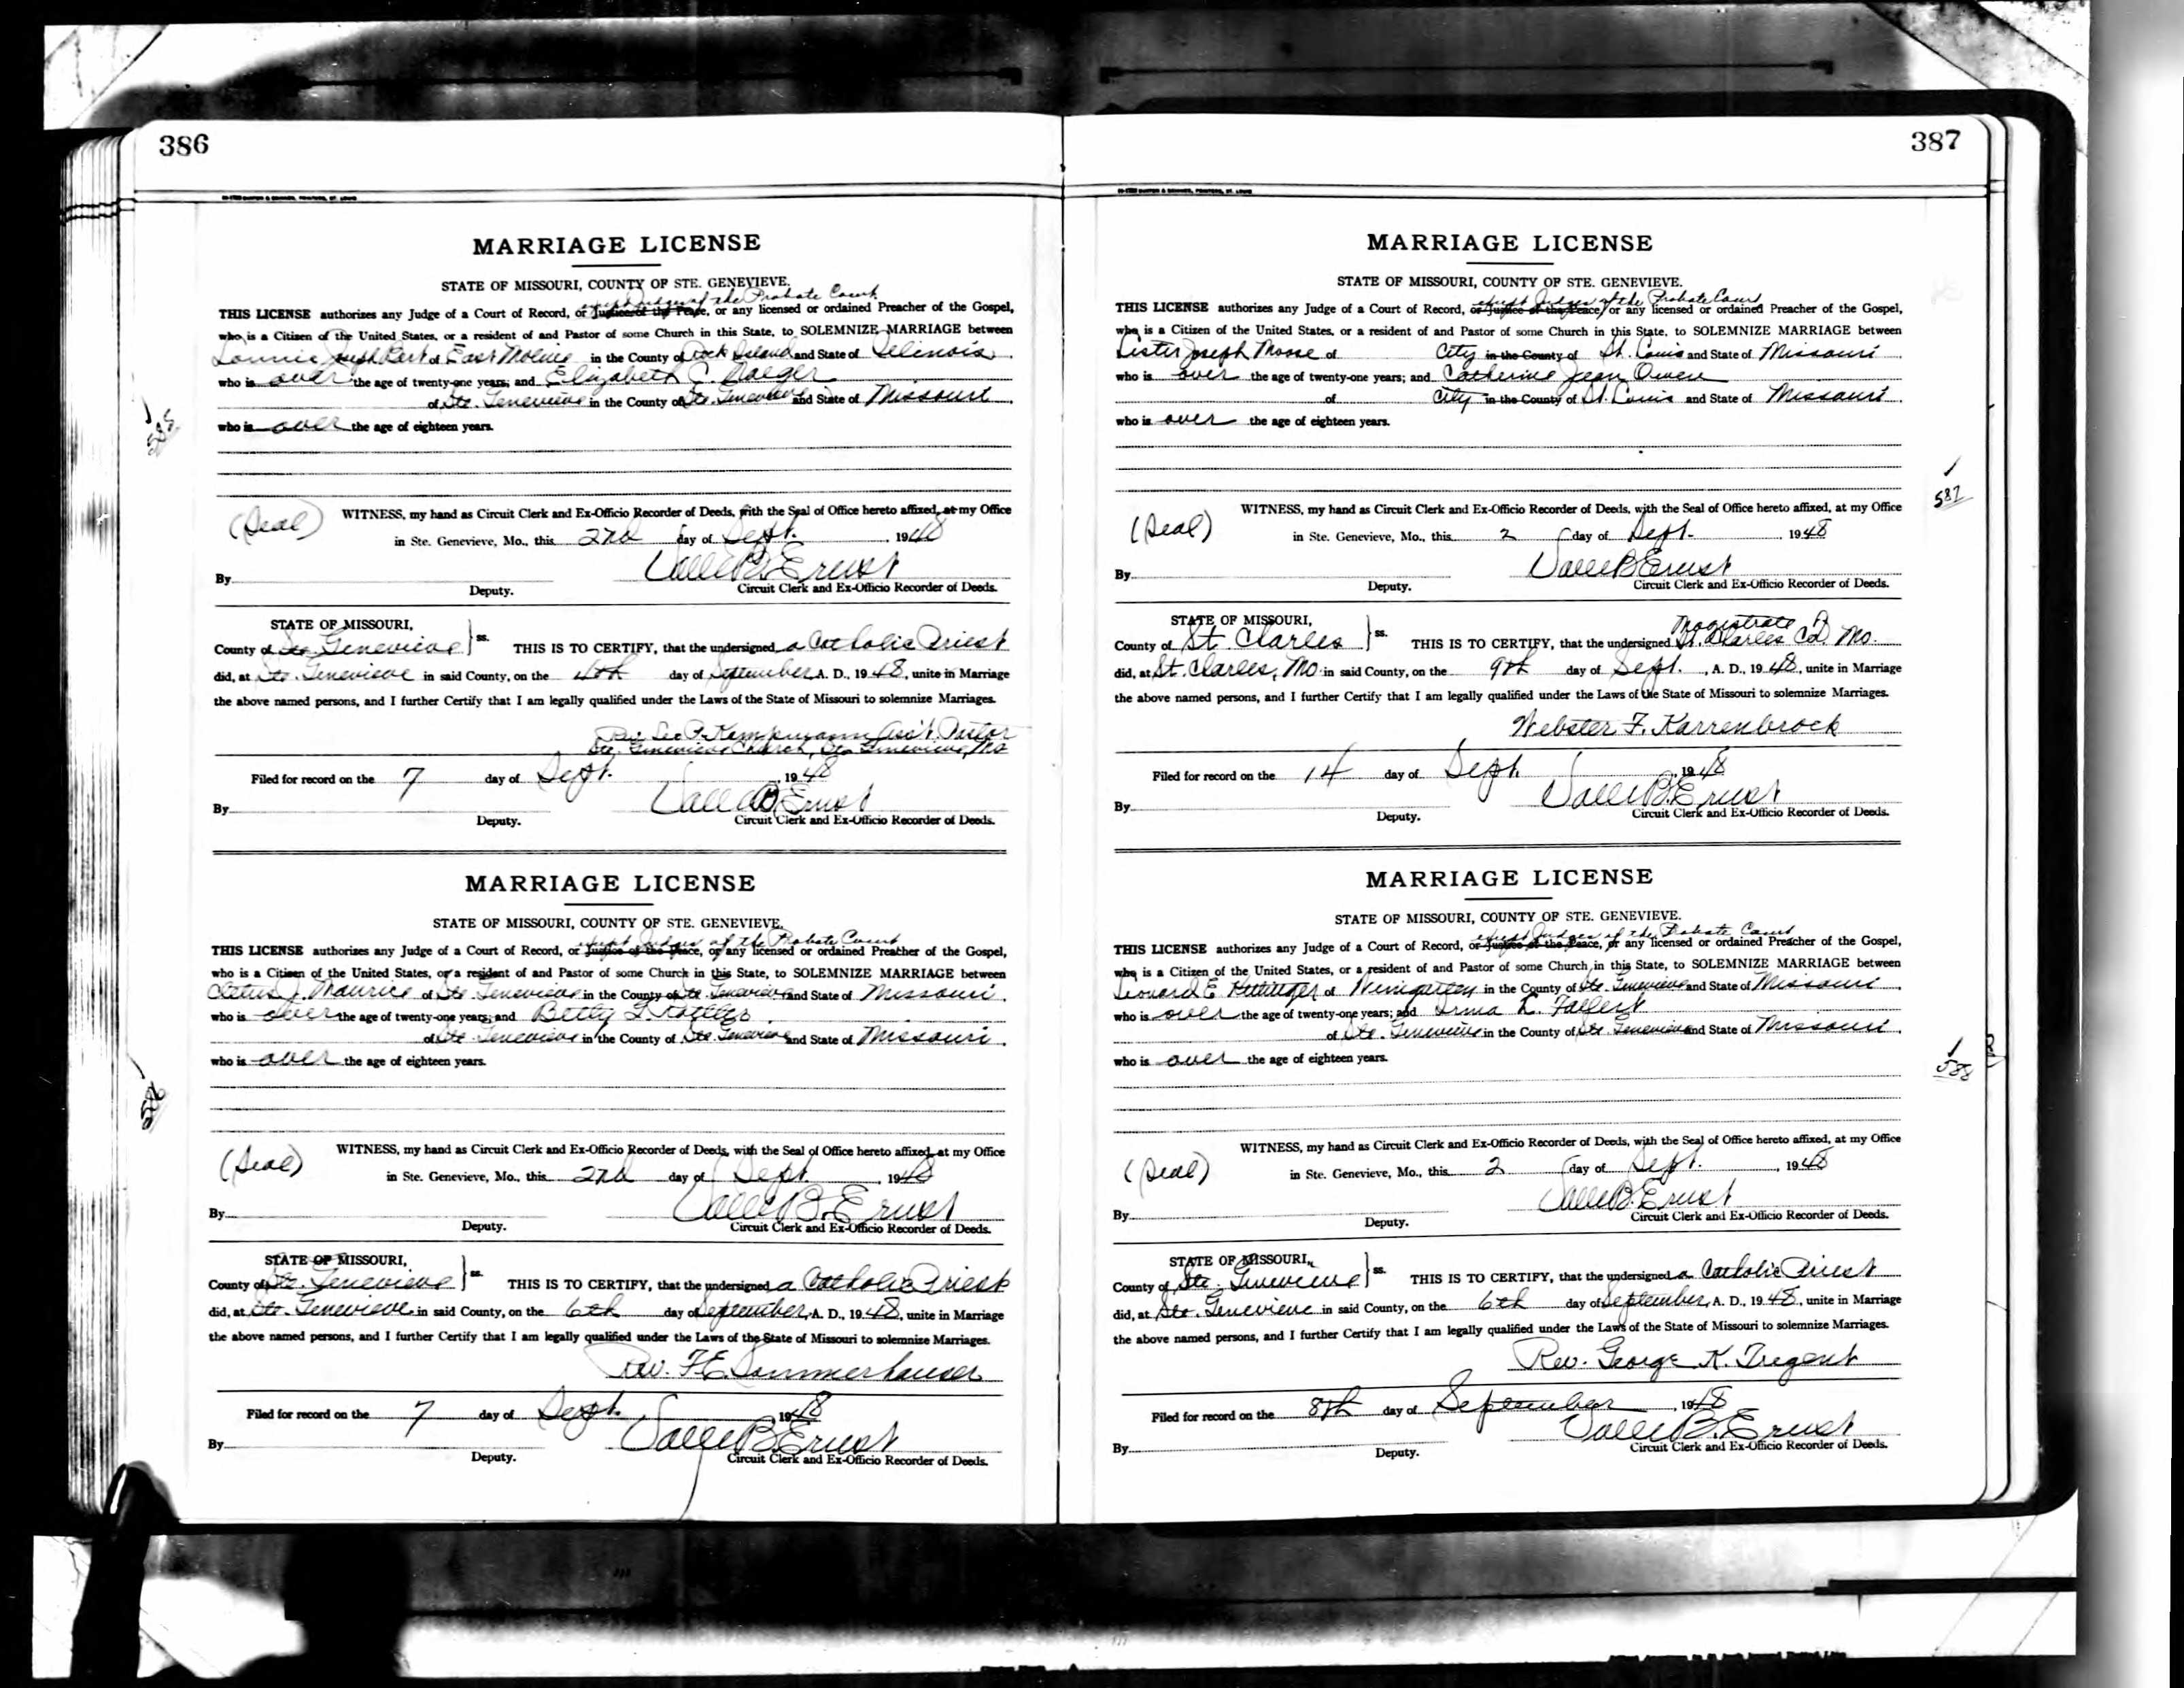 386
MARRIAGE LICENSE
STATE OF MISSOURI, COUNTY OF STE. GENEVIEVE.
except Judges of the Probate Court
THIS LICENSE authorizes any Judge of a Court of Record, or Justice of the Peace, or any licensed or ordained Preacher of the Gospel,
who is a Citizen of the United States, or a resident of and Pastor of some Church in this State, to SOLEMNIZE MARRIAGE between
Lonnie Joseph of East Moline in the County of Rock Island and State of Illinois.
who is over the age of twenty-one years; and Elizabeth C. Naeger
of Ste. Genevieve in the County of Ste. Genevieve and State of Missouri.
who is over the age of eighteen years.
585
(Seal)
WITNESS, my hand as Circuit Clerk and Ex-Officio Recorder of Deeds, with the Seal of Office hereto affixed, at my Office
in Ste. Genevieve, Mo., this 2nd day of Sept. 1948
Valle B. Ernst
By
Deputy. Circuit Clerk and Ex-Officio Recorder of Deeds.
STATE OF MISSOURI,
County of Ste. Genevieve } ss. THIS IS TO CERTIFY, that the undersigned a Catholic Priest
did, at Ste. Genevieve in said County, on the day of September A. D., 1948, unite in Marriage
the above named persons, and I further Certify that I am legally qualified under the Laws of the State of Missouri to solemnize Marriages.
Rev. Kempmann Ass't. Pastor
Ste. Genevieve Church, Ste. Genevieve, Mo
Filed for record on the 7 day of Sept. 1948
Valle B Ernst
By
Deputy. Circuit Clerk and Ex-Officio Recorder of Deeds.
MARRIAGE LICENSE
STATE OF MISSOURI, COUNTY OF STE. GENEVIEVE.
except Judges of the Probate Court
THIS LICENSE authorizes any Judge of a Court of Record, or Justice of the Peace, or any licensed or ordained Preacher of the Gospel,
who is a Citizen of the United States, or a resident of and Pastor of some Church in this State, to SOLEMNIZE MARRIAGE between
Cletus J. Maurice of Ste. Genevieve in the County of Ste. Genevieve and State of Missouri.
who is over the age of twenty-one years; and Betty
of Ste. Genevieve in the County of Ste. Genevieve and State of Missouri.
who is over the age of eighteen years.
(Seal)
WITNESS, my hand as Circuit Clerk and Ex-Officio Recorder of Deeds, with the Seal of Office hereto affixed, at my Office
in Ste. Genevieve, Mo., this 2nd day of Sept. 1948
Valle B. Ernst
By
Deputy. Circuit Clerk and Ex-Officio Recorder of Deeds.
STATE OF MISSOURI,
County of Ste. Genevieve } ss. THIS IS TO CERTIFY, that the undersigned a Catholic Priest
did, at Ste. Genevieve in said County, on the 6th day of September, A. D., 1948, unite in Marriage
the above named persons, and I further Certify that I am legally qualified under the Laws of the State of Missouri to solemnize Marriages.
Rev. F E Sommerhauser
Filed for record on the 7 day of Sept. 1948
Valle B. Ernst
By
Deputy. Circuit Clerk and Ex-Officio Recorder of Deeds.
387
MARRIAGE LICENSE
STATE OF MISSOURI, COUNTY OF STE. GENEVIEVE.
except Judges of the Probate Court
THIS LICENSE authorizes any Judge of a Court of Record, or Justice of the Peace, or any licensed or ordained Preacher of the Gospel,
who is a Citizen of the United States, or a resident of and Pastor of some Church in this State, to SOLEMNIZE MARRIAGE between
Lister Joseph Moore of City in the County of St. Louis and State of Missouri
who is over the age of twenty-one years; and Catherine Jean Owen
of City in the County of St. Louis and State of Missouri.
who is over the age of eighteen years.
587
(Seal)
WITNESS, my hand as Circuit Clerk and Ex-Officio Recorder of Deeds, with the Seal of Office hereto affixed, at my Office
in Ste. Genevieve, Mo., this 2 day of Sept. 1948
Valle B Ernst
By
Deputy. Circuit Clerk and Ex-Officio Recorder of Deeds.
STATE OF MISSOURI,
Magistrate
County of St. Charles } ss. THIS IS TO CERTIFY, that the undersigned St. Charles Co. Mo.
did, at St. Charles, Mo in said County, on the 9th day of Sept., A. D., 1948, unite in Marriage
the above named persons, and I further Certify that I am legally qualified under the Laws of the State of Missouri to solemnize Marriages.
Webster F. Karrenbrock
Filed for record on the 14 day of Sept. 1948
Valle B. Ernst
By
Deputy. Circuit Clerk and Ex-Officio Recorder of Deeds.
MARRIAGE LICENSE
STATE OF MISSOURI, COUNTY OF STE. GENEVIEVE.
except Judges of the Probate Court
THIS LICENSE authorizes any Judge of a Court of Record, or Justice of the Peace, or any licensed or ordained Preacher of the Gospel,
who is a Citizen of the United States, or a resident of and Pastor of some Church in this State, to SOLEMNIZE MARRIAGE between
Leonard E of Weingarten in the County of Ste. Genevieve and State of Missouri
who is over the age of twenty-one years; and Irma L. Fallert
of Ste. Genevieve in the County of Ste. Genevieve and State of Missouri.
who is over the age of eighteen years.
588
(Seal)
WITNESS, my hand as Circuit Clerk and Ex-Officio Recorder of Deeds, with the Seal of Office hereto affixed, at my Office
in Ste. Genevieve, Mo., this 2 day of Sept. 1948
Valle B. Ernst
By
Deputy. Circuit Clerk and Ex-Officio Recorder of Deeds.
STATE OF MISSOURI,
County of Ste. Genevieve } ss. THIS IS TO CERTIFY, that the undersigned a Catholic Priest
did, at Ste. Genevieve in said County, on the 6th day of September, A. D., 1948, unite in Marriage
the above named persons, and I further Certify that I am legally qualified under the Laws of the State of Missouri to solemnize Marriages.
Rev. George K. Tregent
Filed for record on the 8th day of September, 1948
Valle B. Ernst
By
Deputy. Circuit Clerk and Ex-Officio Recorder of Deeds.